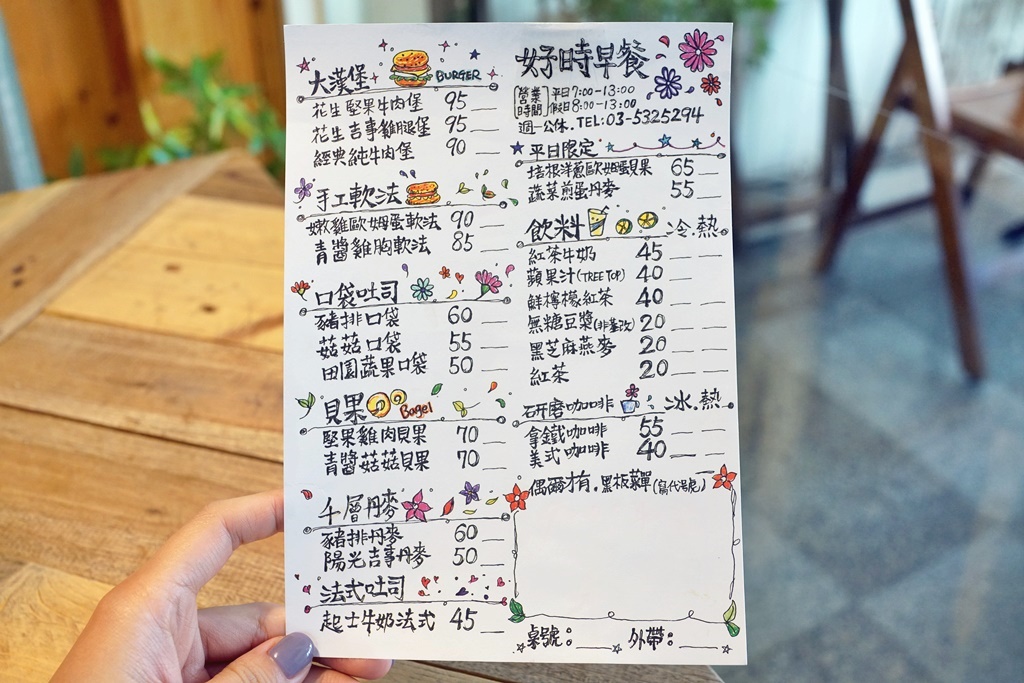 大漢堡 BURGER
花生堅果牛肉堡 95
花生吉事雞腿堡 95
經典純牛肉堡 90
手工軟法
嫩雞歐姆蛋軟法 90
青醬雞胸軟法 85
口袋吐司
豬排口袋 60
菇菇口袋 55
田園蔬果口袋 50
貝果 Bagel
堅果雞肉貝果 70
青醬菇菇貝果 70
千層丹麥
豬排丹麥 60
陽光吉事丹麥 50
法式吐司
起士牛奶法式 45
好時早餐
營業時間 平日7:00-13:00
假日8:00-13:00
週一公休. TEL:03-5325294
平日限定
培根洋蔥歐姆蛋貝果 65
蔬菜煎蛋丹麥 55
飲料 冷.熱
紅茶牛奶 45
蘋果汁(TREE TOP) 40
鮮檸檬紅茶 40
無糖豆漿(非基改) 20
黑芝麻燕麥 20
紅茶 20
研磨咖啡 冰.熱
拿鐵咖啡 55
美式咖啡 40
偶爾才有.黑板菜單(寫代号呢)
桌號: 外帶: